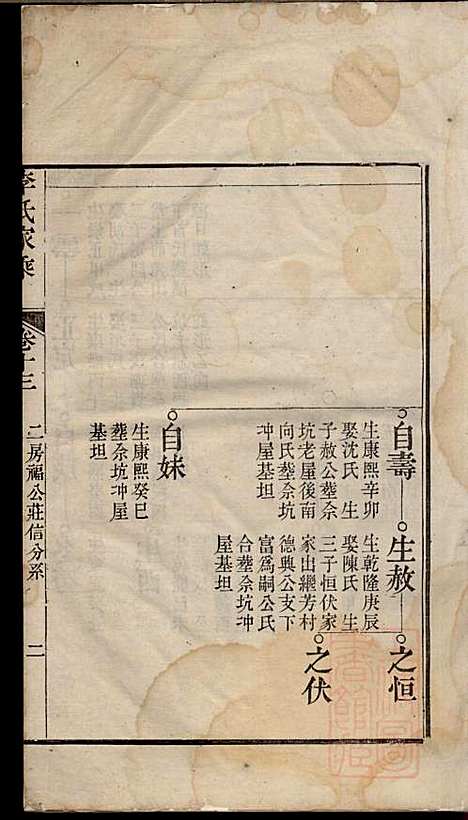 自壽
生康熙辛卯
娶沈氏 生
子赦公葬佘
坑老屋後南
向氏葬佘坑
冲屋基坦
生赦
生乾隆庚辰
娶陳氏 生
三子恒伏家
家出繼芳村
德興公支下
富為嗣公氏
合葬佘坑冲
屋基坦
之恒
之伏
自妹
生康熙癸巳
葬佘坑冲屋
基坦
李氏家乘
卷十三
二房福公莊信分系
二